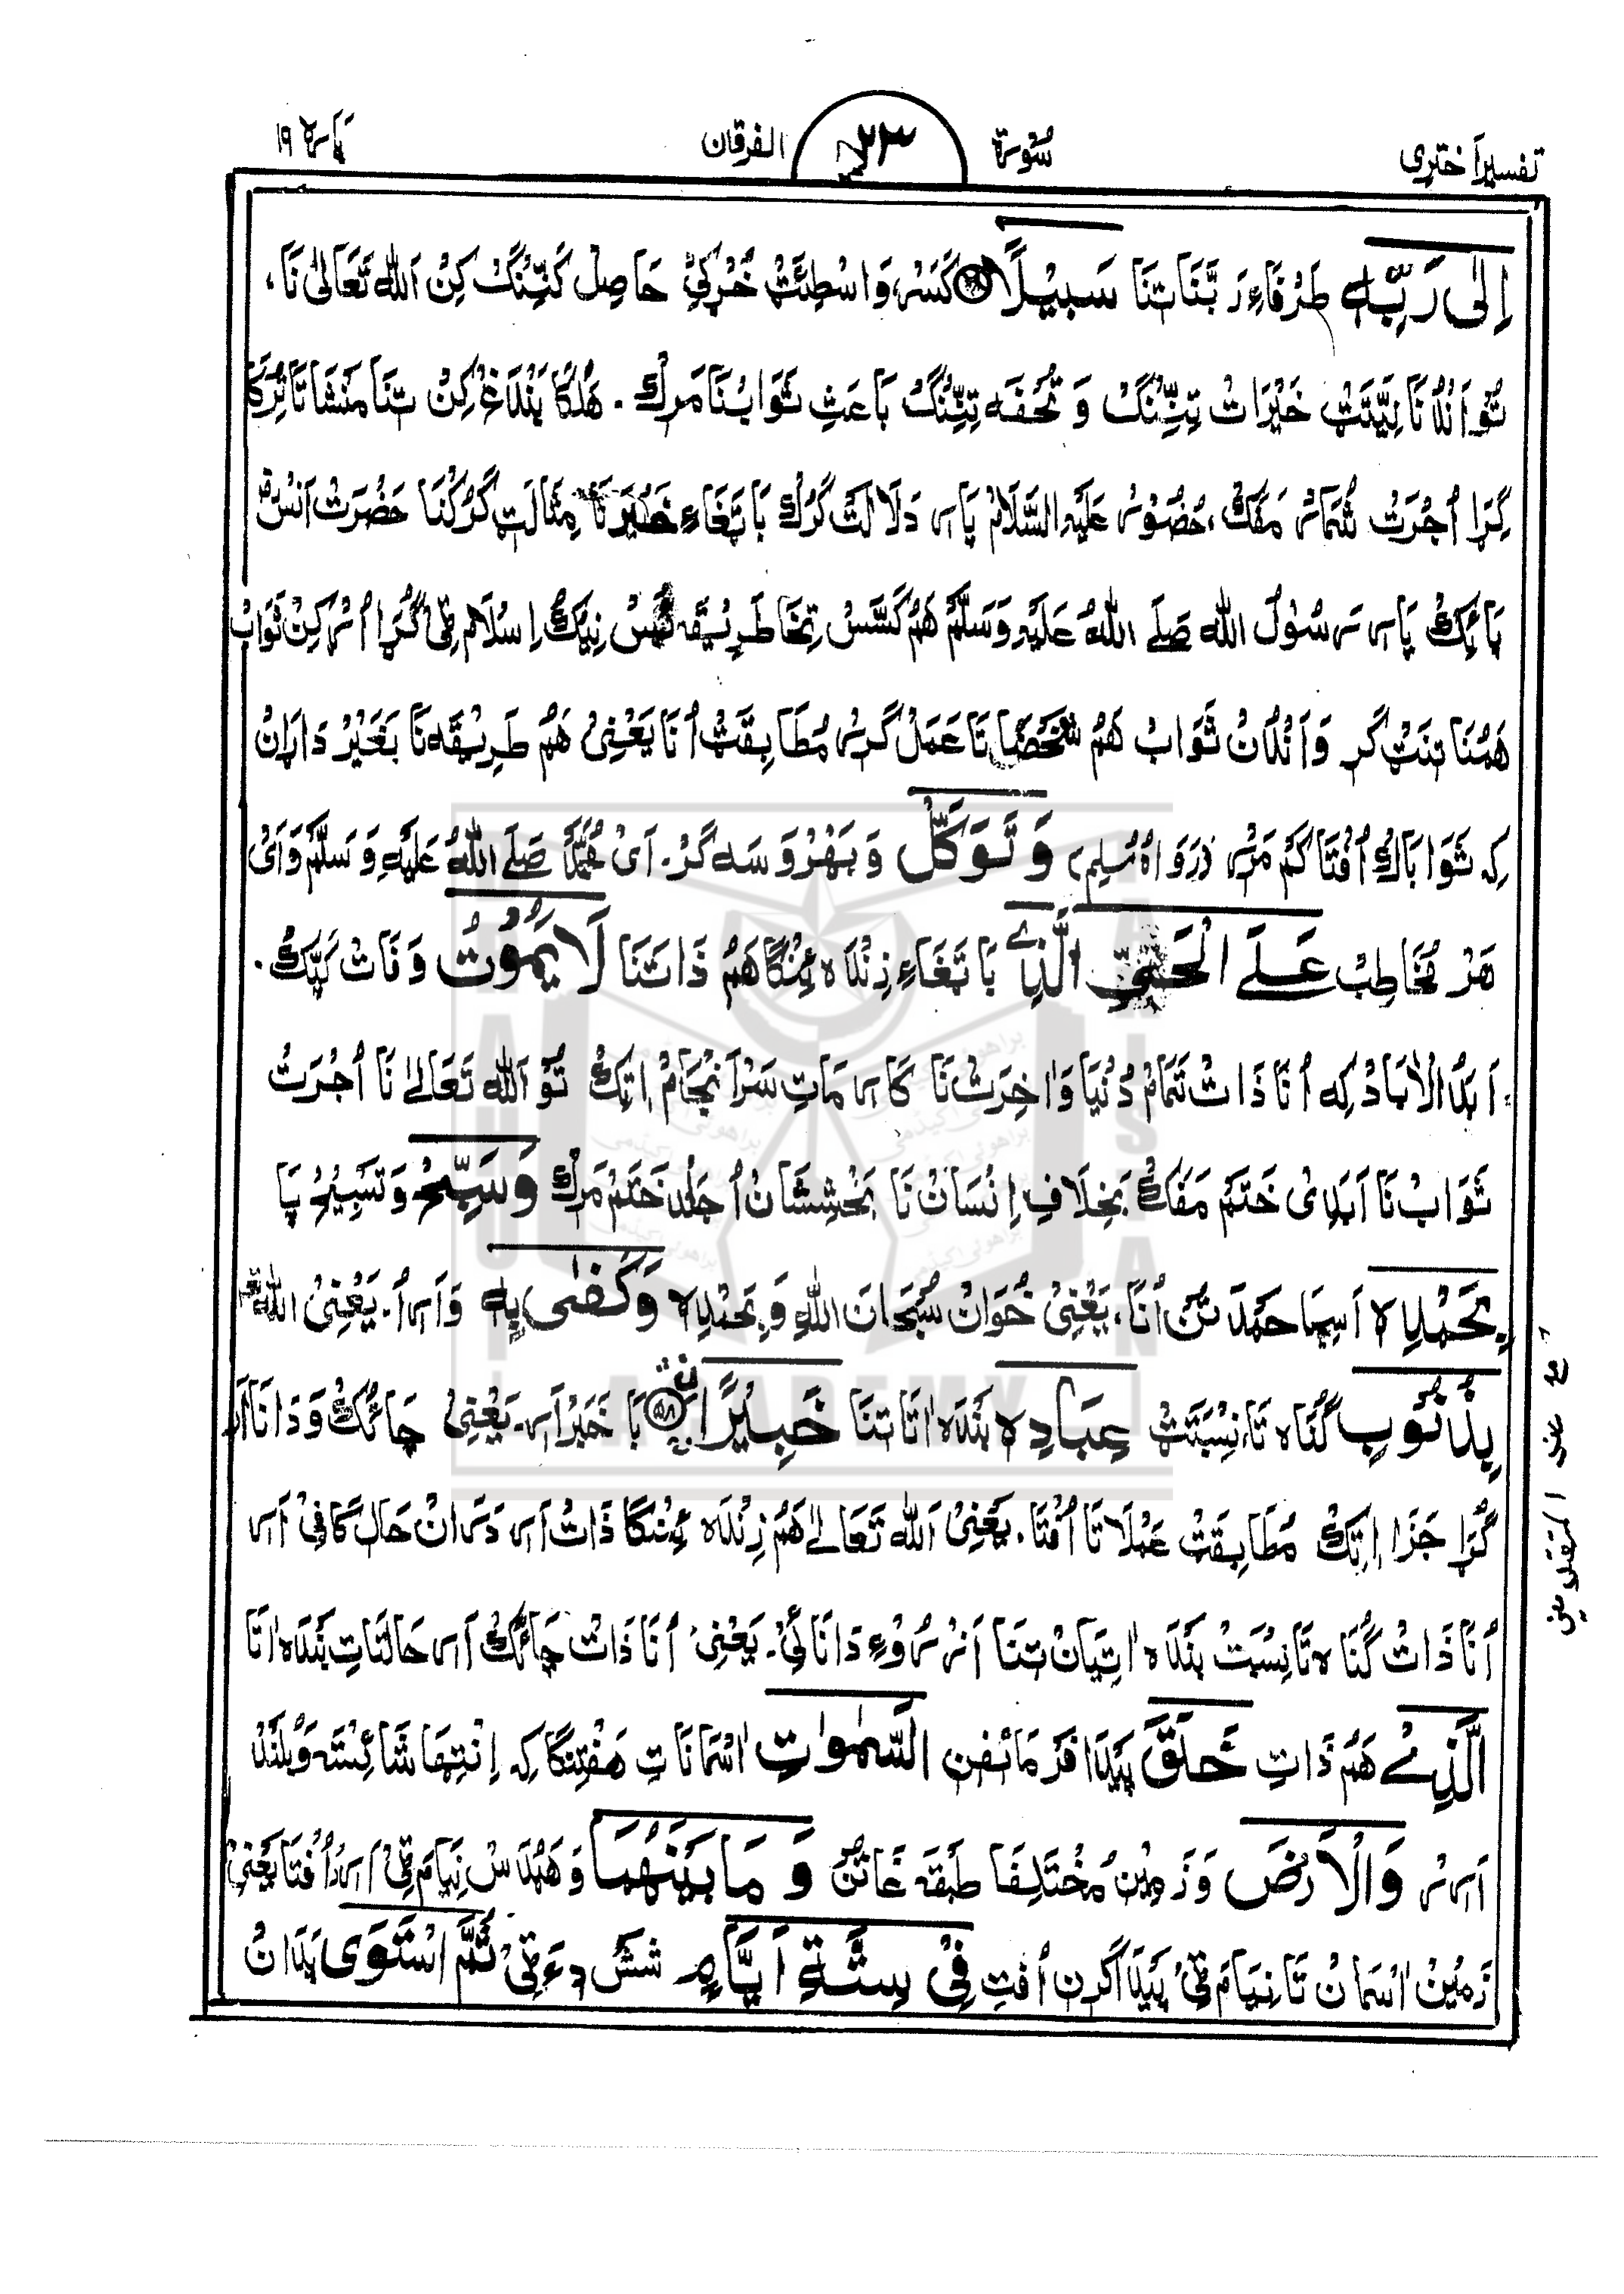 تفسیر اختری سُورة ٢٣ الفرقان پاره ۱۹
اِلٰی رَبِّهٖ طَرْفَاءِ رَبَّنَا تِنَا سَبِیْلًا ﴿۵۷﴾ کَسَرْ، وَاسْطِئَتْ خُرْکِیْ حَاصِلْ کَنِّنْگ کِنْ اَللّٰه تَعَالٰی نَا،
تُوْ اَنْدُنَا نِیَّتَتْ خَیْرَاتْ تِنِّنْگ وَ تُحْفَه تِنِّنْگ بَاعَثِ ثَوَابْ نَا مَرِکْ . هَنْدُکَا بَنْدَاغْ کِنْ تِنَا مَنْشَانَا تِرْکَا
گِرَا اُجْرَتْ شُمَارْ مَفَکْ، حُضُوْر عَلَیْهِ السَّلَامْ پَارِ دَلَالَتْ گَرُکْ بَاتَغَاءِ خَیْرَنَا مِثَالَتِ گَرُکْنَا حَضْرَتْ اَنَسْ
پَائِکْ پَارِ رَسُوْلُ اللّٰه صَلَے اللّٰهُ عَلَیْهِ وَسَلَّمْ هَمْ کَسَّسْ تِخَا طَرِیْقَه نِیْکْ اِسْلَام ٹِیْ گُڑَا اُرْکِنْ ثَوَابْ
هَمْنَا تِنَتْ گَرِ وَ اَنْدُنْ ثَوَابْ هَمْ شَخْصَانَا عَمَلْ گَرْ مُطَابِقَتْ اُنَا یَعْنِیْ هَمْ طَرِیْقَه نَا بَغَیْرْ دَارَانْ
کِه ثَوَابَاکْ اُفْتَا کَمْ مَرْر (رَوَاهُ مُسْلِم) وَ تَوَکَّلْ وَ بَهْرُوَسَه گَرْ. اَیْ مُحَمَّدْ صَلَے اللّٰهُ عَلَیْهِ وَ سَلَّمْ وَ اَیْ
هَرْ مُخَاطِبْ عَلَے الْحَیِّ الَّذِیْ بَاتَغَاءِ زِنْدَه ئِنْگَا هَمْ ذَاتَنَا لَا یَمُوْتُ وَفَاتْ کَپَّکْ.
اَبَدُ الْاٰبَادْ کِه اُنَا ذَاتْ تَمَامْ دُنْیَا وَ اٰخِرَتْ نَا کَارِمَاتِ سَرْاَنْجَامْ اِتِکْ تُوْ اَللّٰه تَعَالٰے نَا اُجْرَتْ
ثَوَابْ نَا اَبَدِیْ خَتَمْ مَفَکْ بَخِلَافِ اِنْسَانْ نَا بَخْشِشَانْ اُ جَلْد خَتَمْ مَرِکْ وَسَبِّحْ وَ تَسْبِیْحْ پَا
بِحَمْدِهٖ اَسِیْا حَمْدَ تُنْ اُنَا، یَعْنِیْ خُوَانْ سُبْحَانَ اللّٰهِ وَ بِحَمْدِهٖ وَکَفٰی بِهٖ وَ اَر اُ. یَعْنِیْ اللّٰه
بِذُنُوْبِ گُنَاه تَا نِسْبَتَتْ عِبَادِهٖ بَنْدَه اٰتَا تِنَا خَبِیْرًا ﴿۵۸﴾ بَا خَبَرْ اَر. یَعْنِیْ چَائِکْ وَ دَانَا اَر
گُڑَا جَزَا اِتِکْ مُطَابِقَتْ عَمْلَا تَا اُفْتَا. یَعْنِیْ اَللّٰه تَعَالٰے هَمْ زِنْدَه ئِنْگَا ذَاتْ اَر دَرَانْ حَالْ کَافِیْ اَر
اُنَا ذَاتْ گُنَاه تَا نِسْبَتْ بَنْدَه اٰتِیَانْ تِنَا اَزْ رُوْءِ دَانَائِیْ. یَعْنِیْ اُنَا ذَاتْ چَائِکْ اَر حَالَتَاتِ بَنْدَه اٰتَا
الَّذِیْ هَمْ ذَاتِ خَلَقَ پَیْدَا فَرْمَائِفْن السَّمٰوٰتِ اٰسْمَانَاتِ هَفْتِنْگَا کِه اِنْتِهَا شَائِسْتَه وَ بُلَنْد
اَرِر وَالْاَرْضَ وَ زَمِیْن مُخْتَلِفَا طَبْقَه غَاتُنْ وَ مَا بَیْنَهُمَا وَ هَنْدَسْ نِیَامْ ٹِیْ اَر اُفْتَا یَعْنِیْ
زَمِیْن اٰسْمَانْ تَا نِیَامْ ٹِیْ پَیْدَا گَرِن اُفْتِ فِیْ سِتَّةِ اَیَّامٍ شَشْ دِءَ ٹِیْ ثُمَّ اسْتَوٰی پَدَانْ